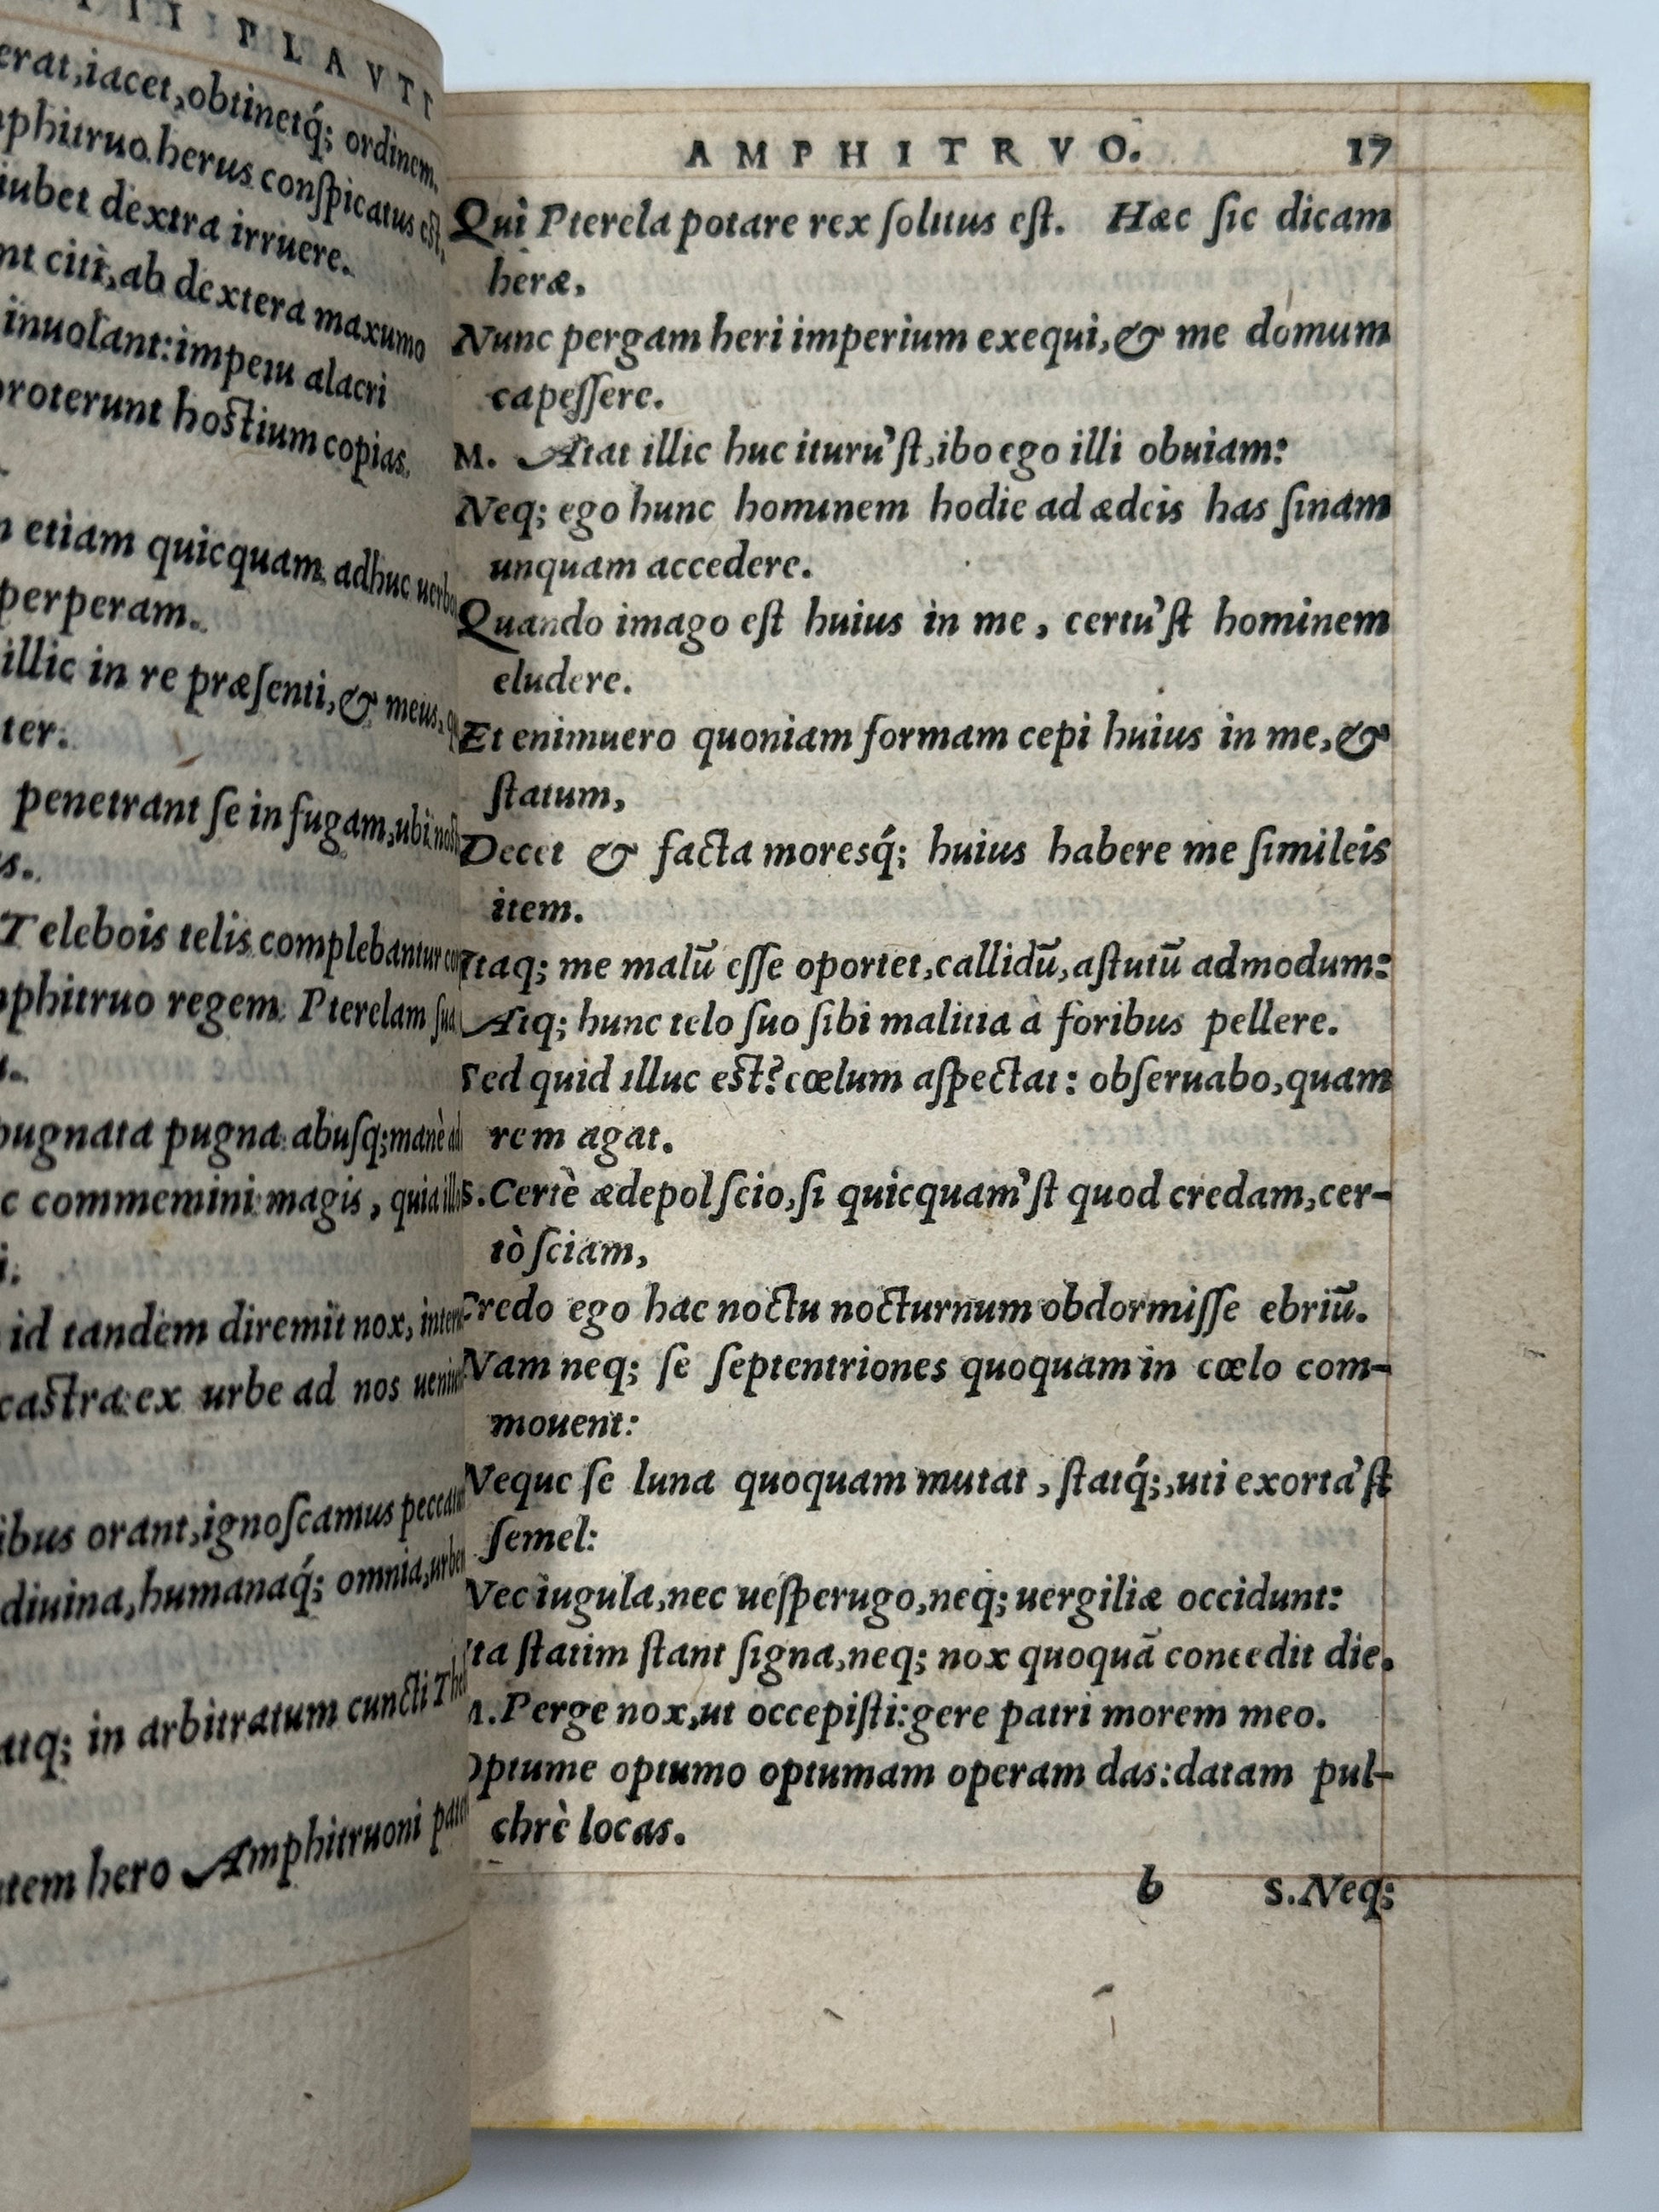 PLAVTI
erat,iacet,obtinetq́; ordinem.
herus conſpicatus eſt,
iubet dextra irruere.
citi,ab dextera maxumo
inuolant:impetu alacri
proterunt hoſtium copias.
etiam quicquam adhuc
perperam.
illic in re præſenti,& meus,
penetrant ſe in fugam,ubi
Telebois telis complebantur
regem Pterelam
pugnata pugna abuſq;manè
commemini magis, quia
id tandem diremit nox,
caſtra ex urbe ad nos
orant,ignoſcamus
diuina,humanaq́; omnia,
atq; in arbitratum cuncti
hero Amphitruoni
AMPHITRVO. 17
Qui Pterela potare rex ſolitus eſt. Hæc ſic dicam
heræ,
Nunc pergam heri imperium exequi,& me domum
capeſſere.
M. Atat illic huc ituru'ſt,ibo ego illi obuiam:
Neq; ego hunc hominem hodie ad ædeis has ſinam
unquam accedere.
Quando imago eſt huius in me, certu'ſt hominem
eludere.
Et enimuero quoniam formam cepi huius in me,&
ſtatum,
Decet & facta moresq́; huius habere me ſimileis
item.
Itaq; me malū eſſe oportet,callidū,aſtutū admodum:
Atq; hunc telo ſuo ſibi malitia à foribus pellere.
Sed quid illuc eſt?cœlum aſpectat: obſeruabo,quam
rem agat.
S. Certè ædepol ſcio,ſi quicquam'ſt quod credam,cer-
tò ſciam,
Credo ego hac noctu nocturnum obdormiſſe ebriū.
Nam neq; ſe ſeptentriones quoquam in cœlo com-
mouent:
Neque ſe luna quoquam mutat, ſtatq́;,uti exorta'ſt
ſemel:
Nec iugula,nec ueſperugo,neq; uergiliæ occidunt:
Ita ſtatim ſtant ſigna,neq; nox quoquā concedit die.
M. Perge nox,ut occepiſti:gere patri morem meo.
Optume optumo optumam operam das:datam pul-
chrè locas.
b S.Neq;